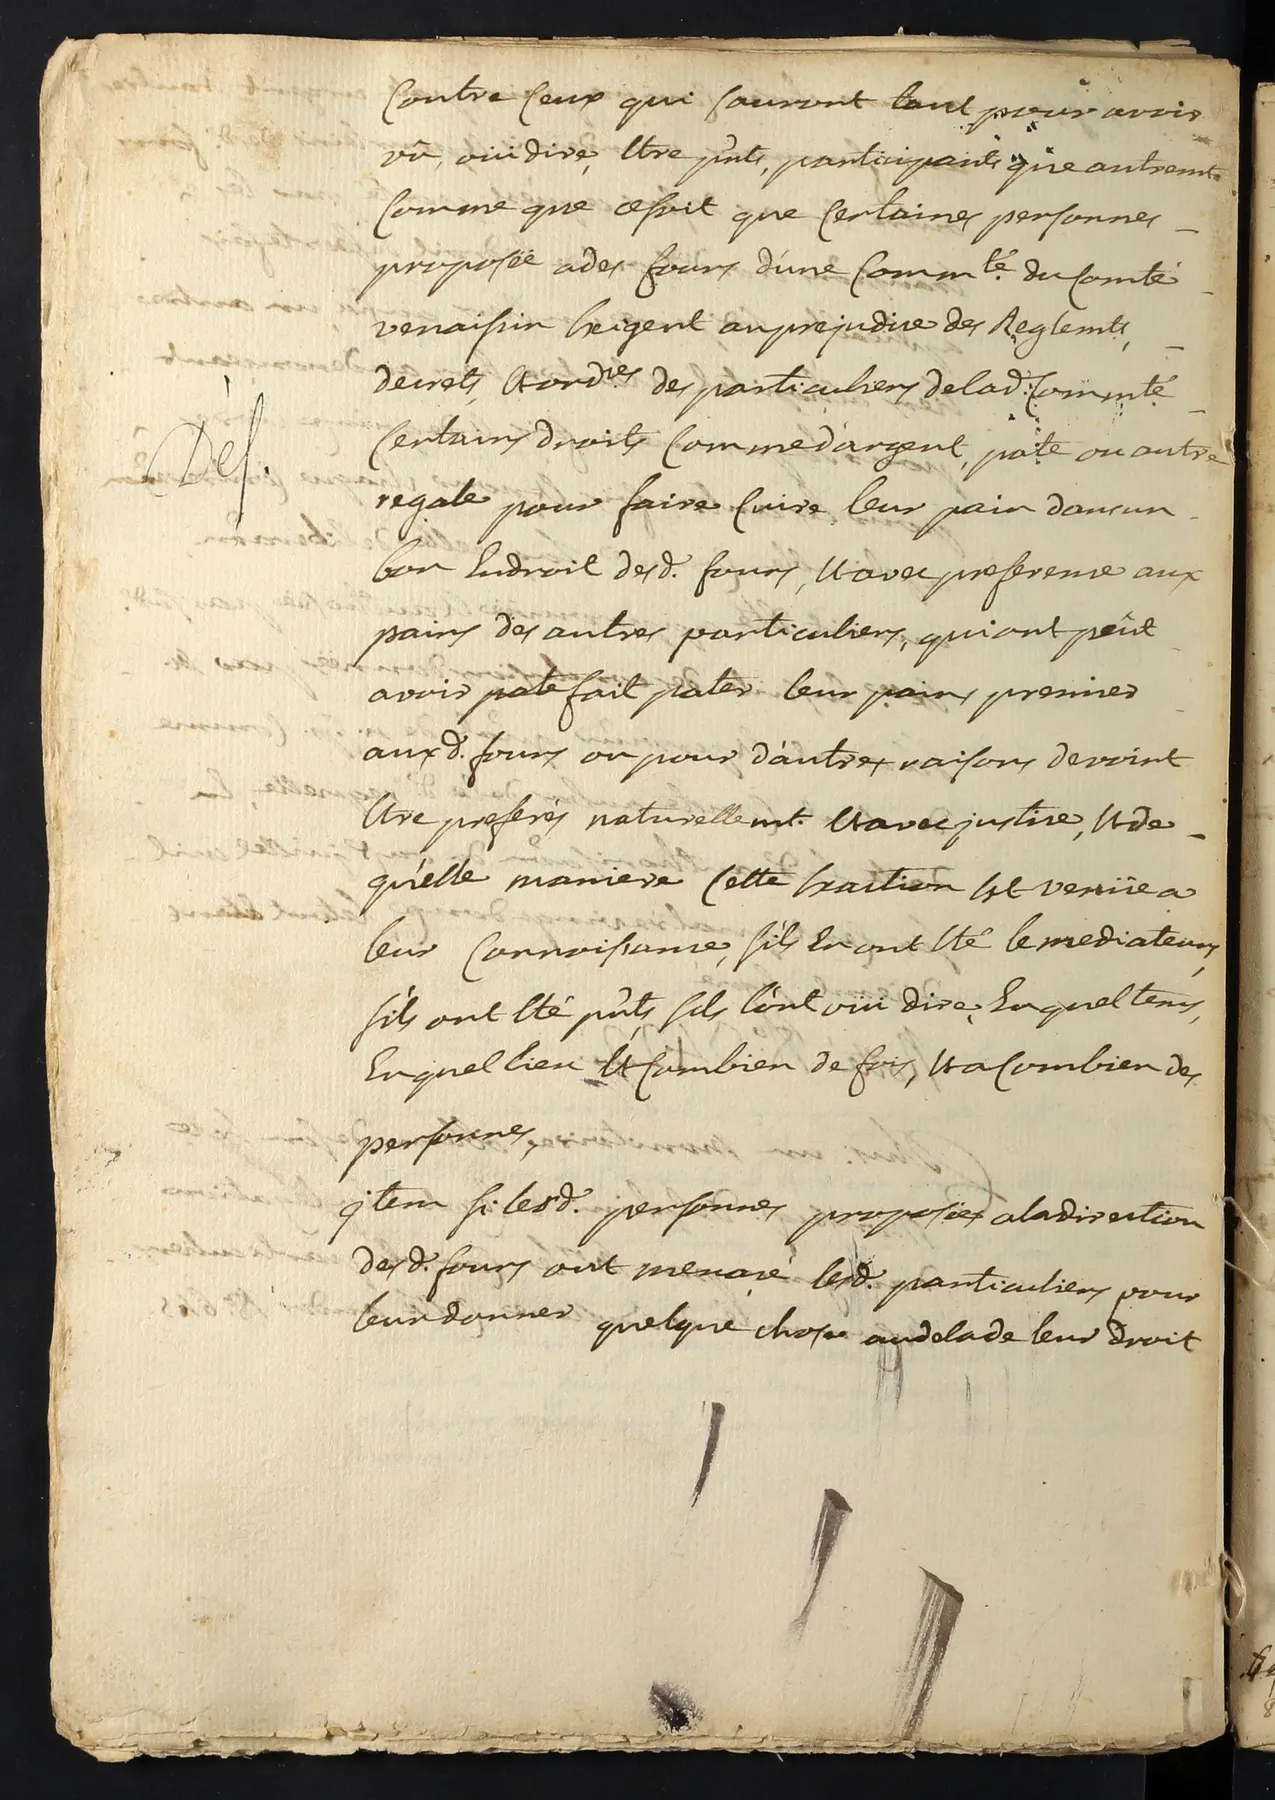 Contre Ceux qui Sauront tant pour avoir
vû, oüi dire, Etre pnts, participants que autremt.
Comme que ce soit que Certaines personnes
proposée a des fours d'une Commté du Comté
venaissin Exigent au prejudice des Reglemts,
decrets, Et ordres des particuliers de lad. Commté
Certains droits Comme d'argent, pate ou autre
regale pour faire Cuire leur pain dans un
bon Endroit desd. fours, Et avec preference aux
pains des autres particuliers, qui ont peut
avoir pate fait pater leur pains premier
auxd. fours ou pour d'autres raisons devoint
Etre preferés naturellemt. Et avec justice, Et de
qu'elle maniere Cette Exaction Est venüe a
leur Connoissance, s'ils En ont Eté le mediateurs,
s'ils ont Eté pnts, s'ils l'ont oüi dire, En quel tems,
En quel lieu Et Combien de fois, Et a Combien des
personnes,
Def.
jtem si lesd. personnes proposées a la direction
desd. fours ont menacé lesd. particuliers pour
leur donner quelque chose au dela de leur droit